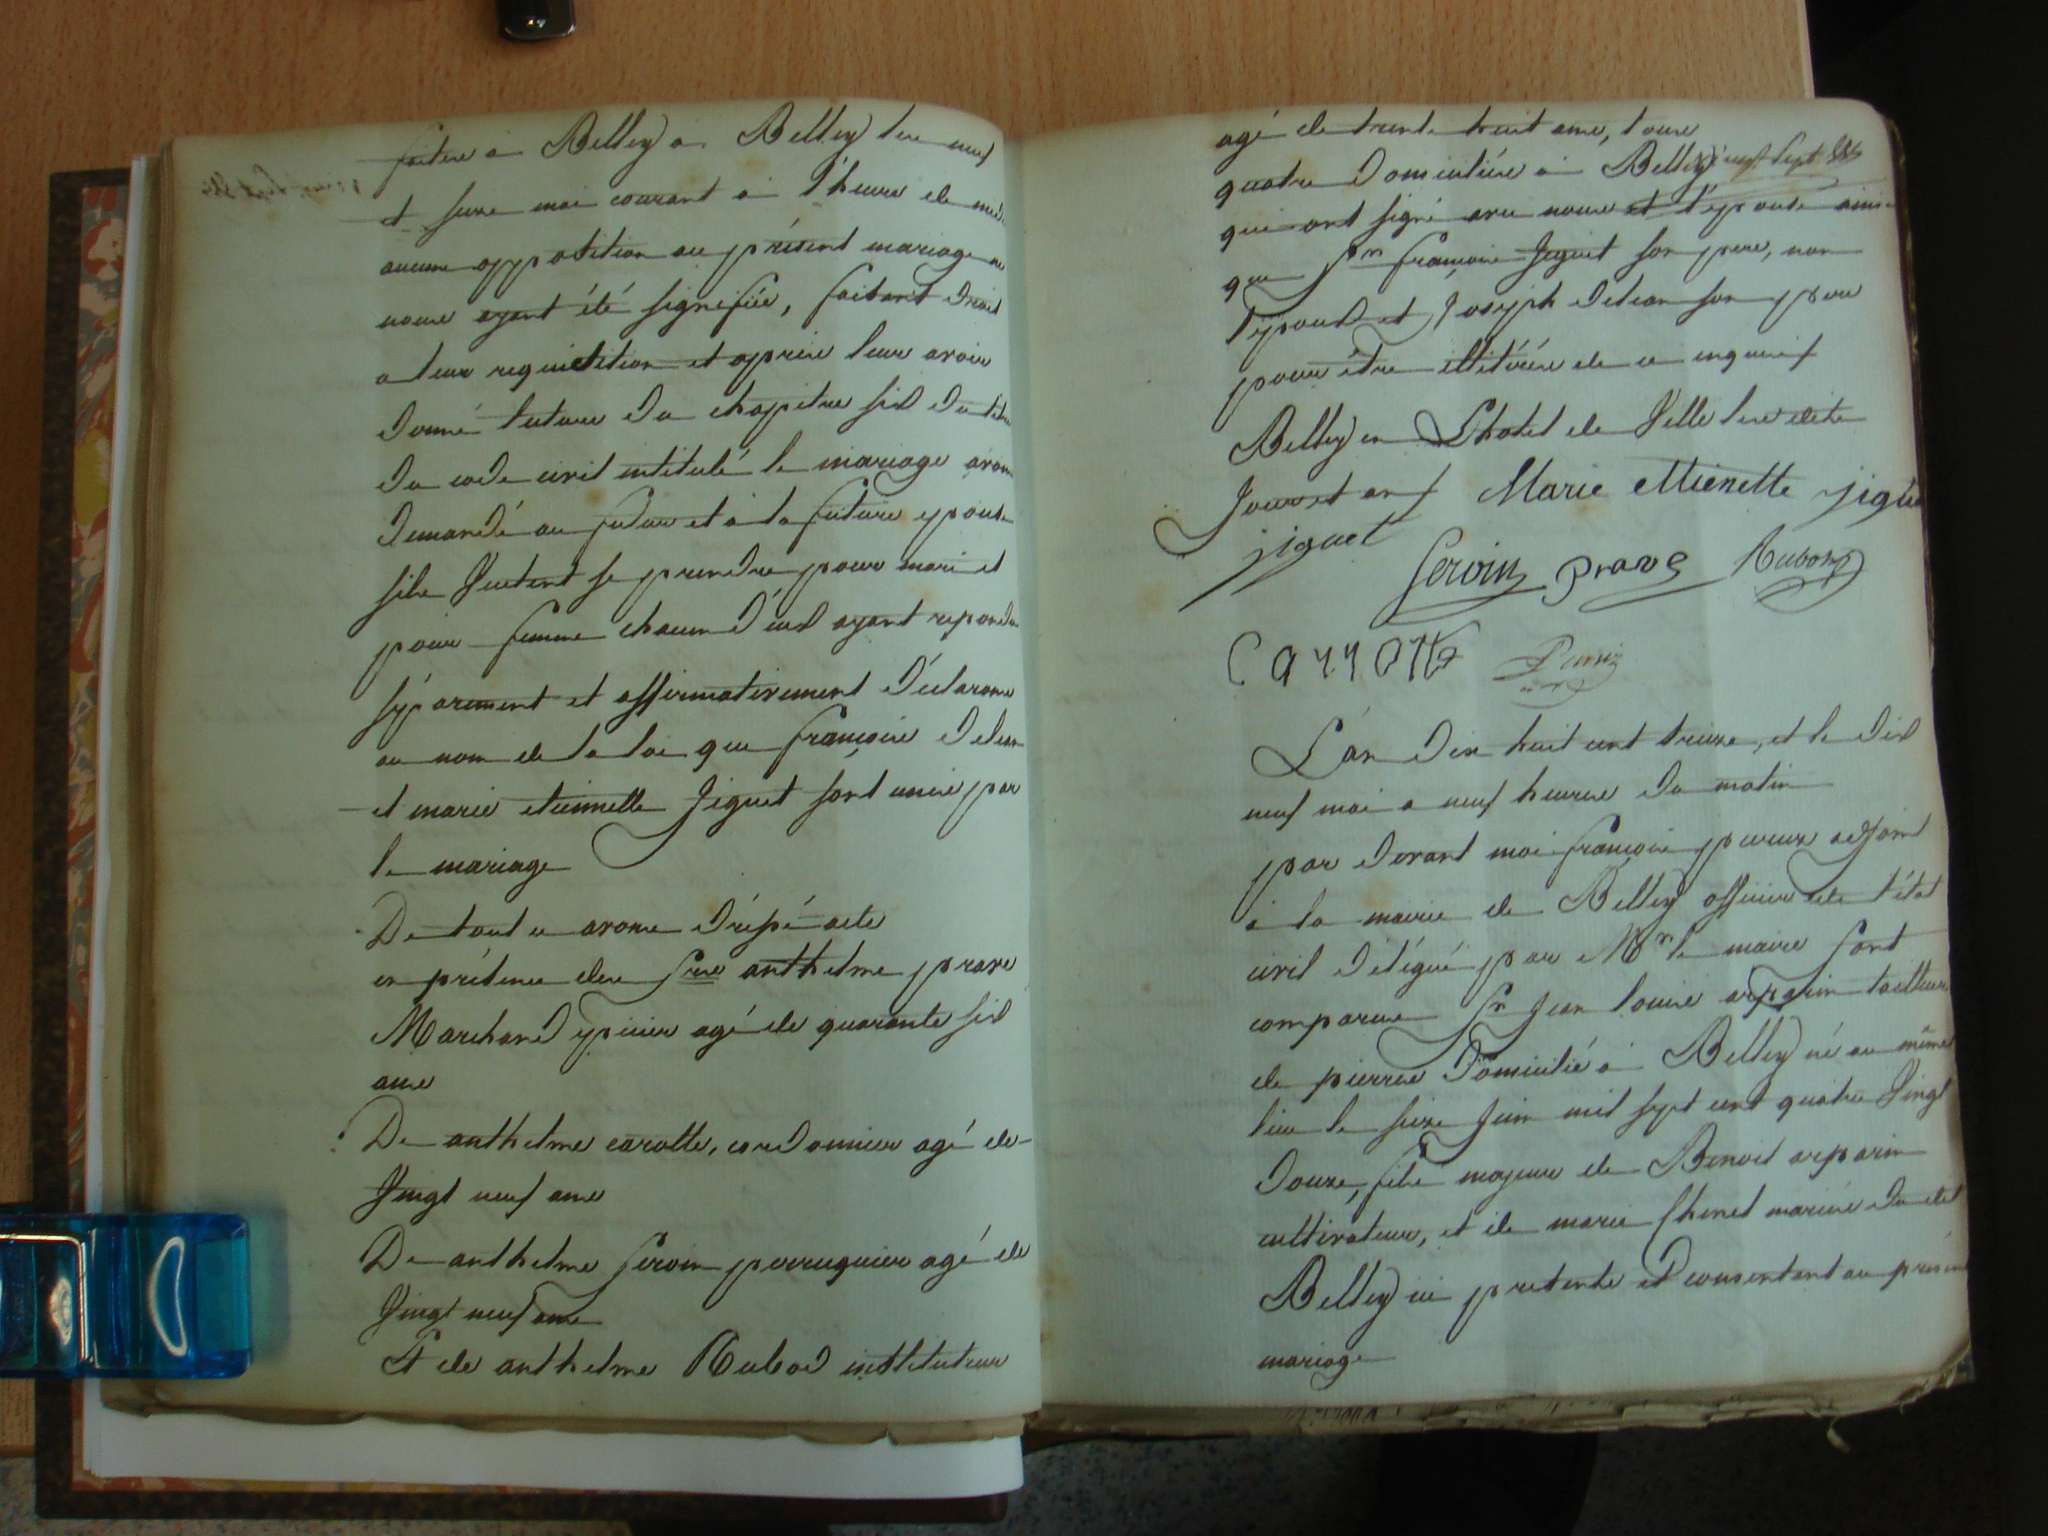 faites à Belley a Belley les neuf
et seize mai courant à l'heure de midi
aucune opposition au présent mariage ne
nous ayant été signifiée, faisant droit
a leur requisition et après leur avoir
donné lecture du chapitre six du titre
du code civil intitulé le mariage avons
demandé au futur et à la future epouse
sils veulent se prendre pour mari et
pour femme chacun d'eux ayant repondu
séparement et affirmativement déclarons
au nom de la loi que françois
et marie etiennette Jiguet sont unis par
le mariage
De tout ce avons
en présence des Srs anthelme prave
Marchand epicier agé de quarante six
ans
De anthelme carotte, cordonnier agé de
Vingt neuf ans
De anthelme servin perruquier agé de
Vingt neuf ans
Et de anthelme Rubod instituteur
agé de trente huit ans, tous
quatre domiciliés à Belley
qui ont signé avec nous et l'épouse ainsi
que Sr françois Jiguet son pere, non
l'époux et Joseph son pere
pour être illitérés de ce enquis
Belley en L'hotel de Ville les dits
Jour et an Marie Etienette jiguet
jiguet
Servin prave Rubod
Carrotte
L'an dix huit cent treize, et le dix
neuf mai a neuf heures du matin
par devant moi françois adjoint
à la mairie de Belley officier de l'état
civil délégué par Mr le maire sont
comparus Sr Jean louis arparin tailleur
de pierres domicilié à Belley né au même
lieu le seize Juin mil sept cent quatre Vingt
douze, fils majeur de Benoit arparin
cultivateur, et de marie mariés du dit
Belley ici présents et consentant au présent
mariage